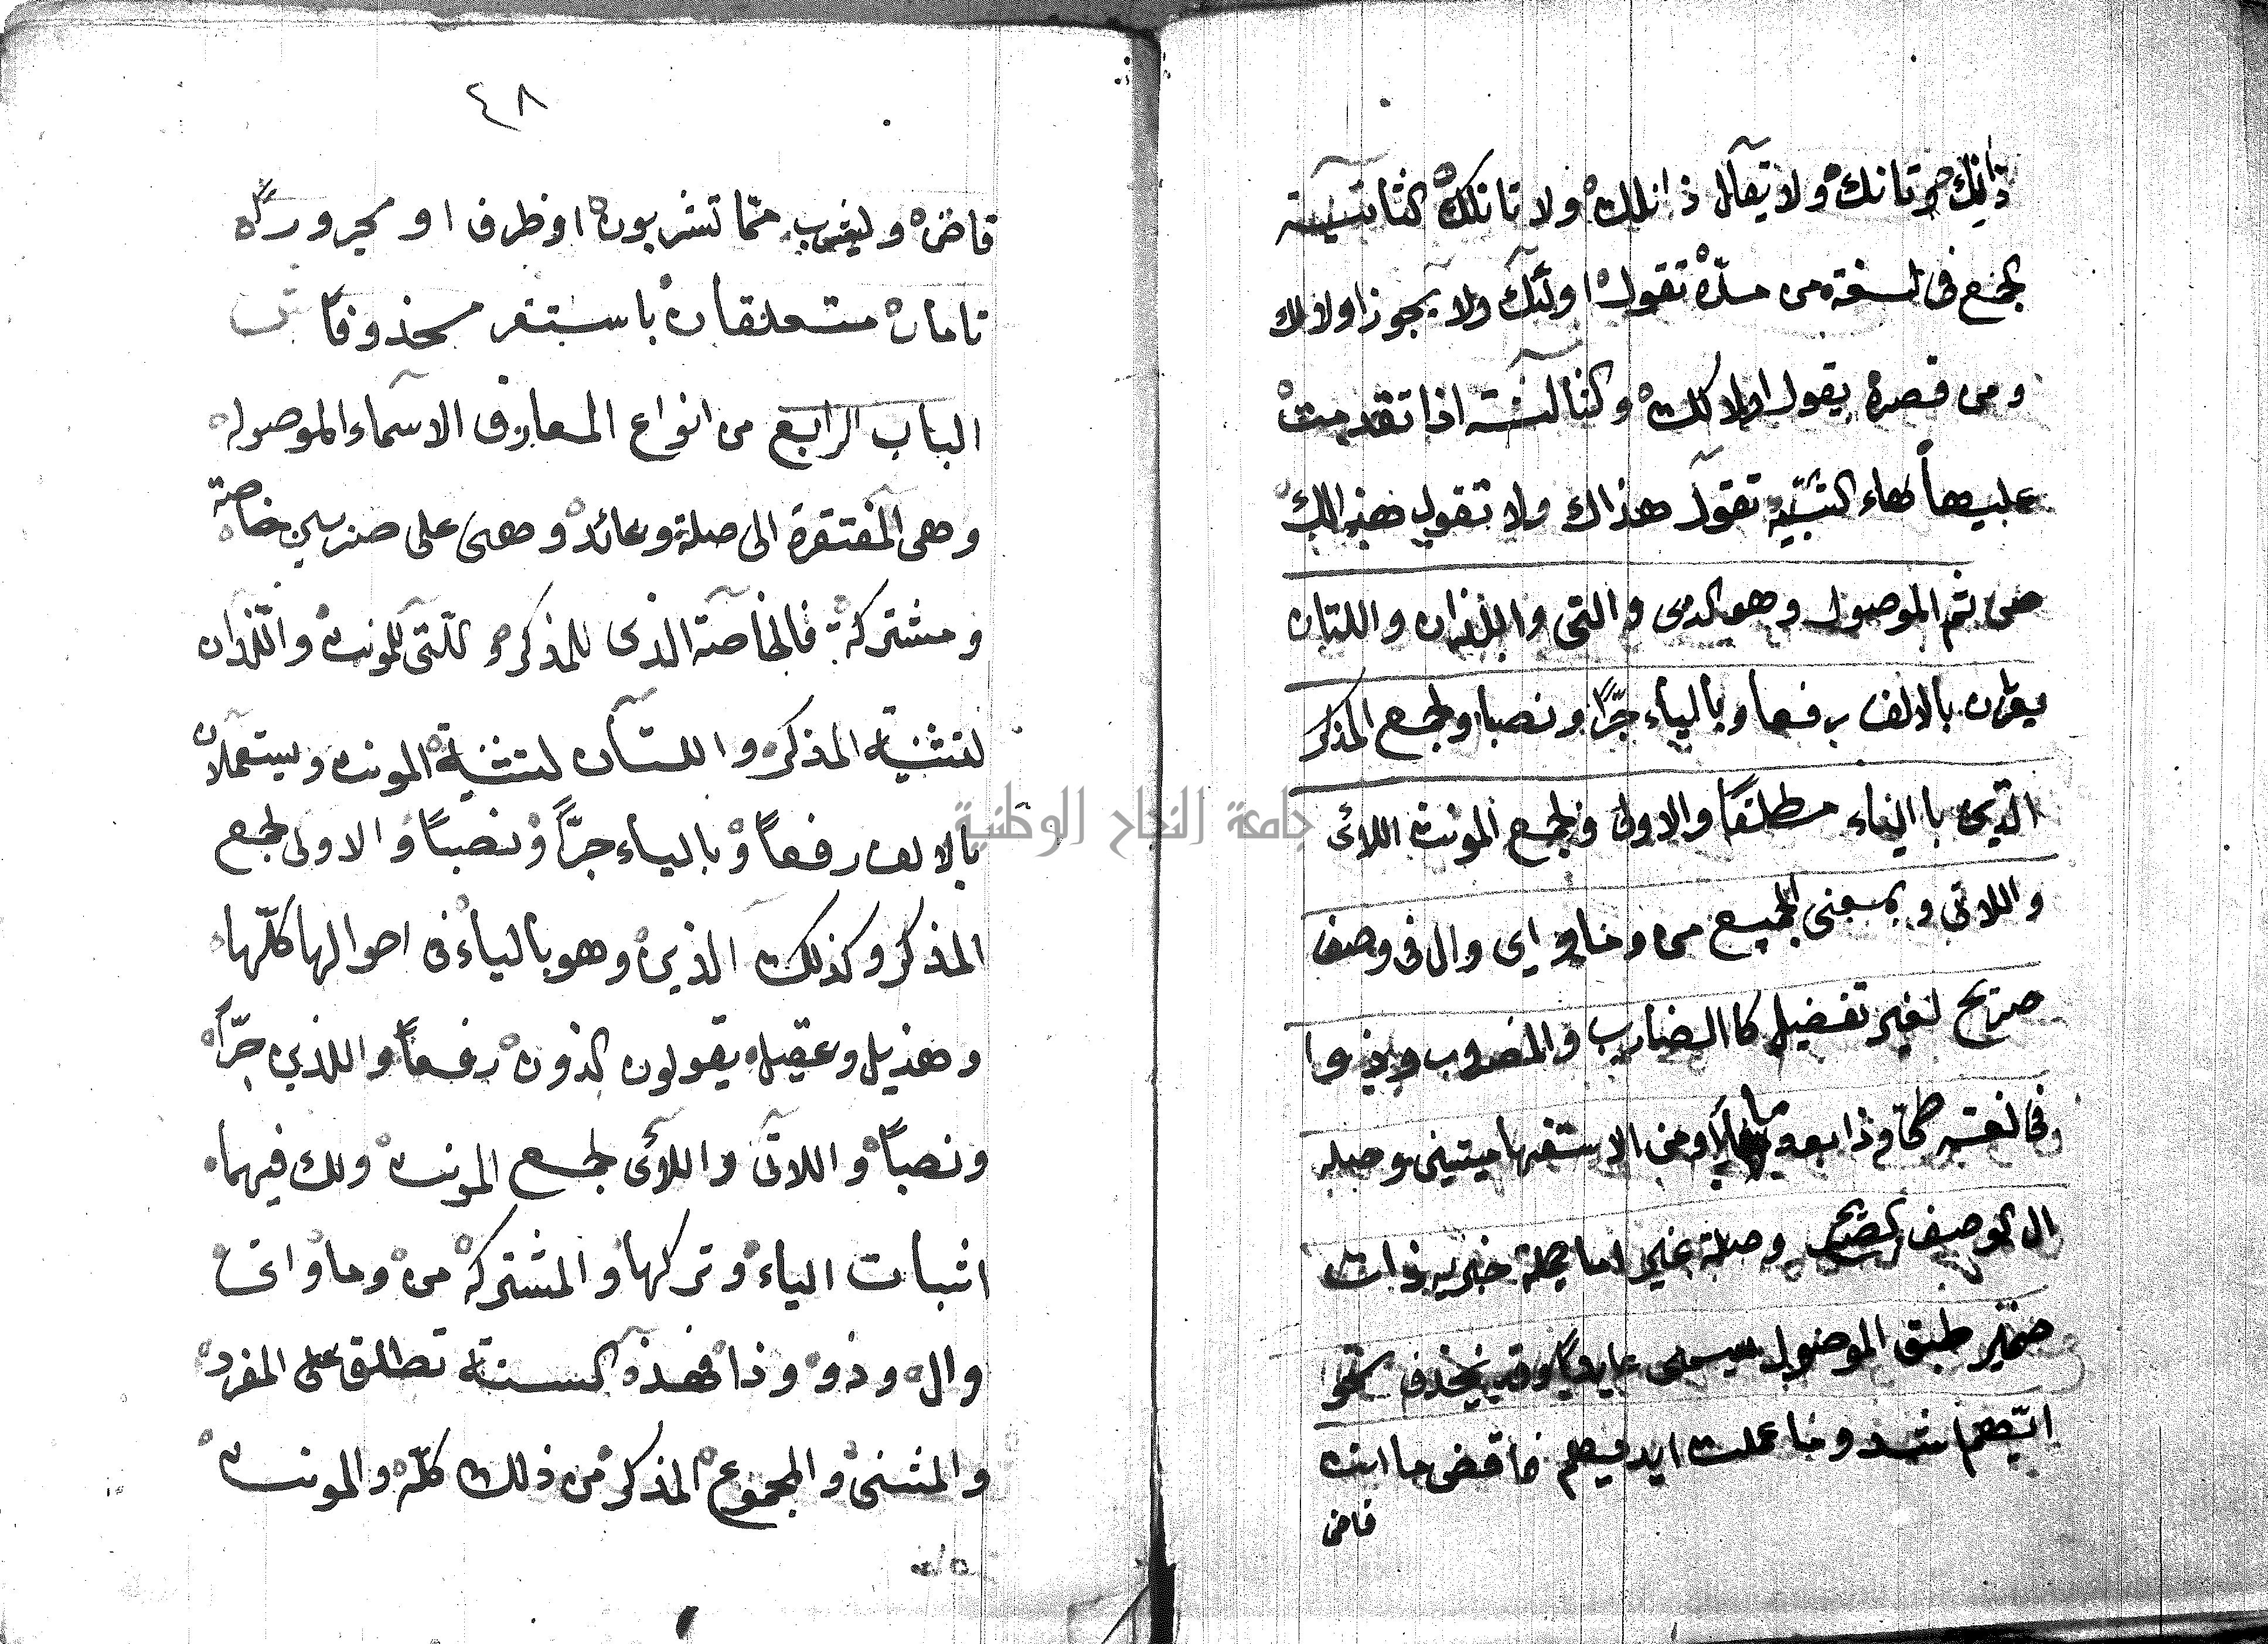 ذانك وتانك ولا يقال ذانلك ولا تانلك الثانية
الجمع فى لغة من مدّه تقول اولئك ولا يجوز اولالك
ومن قصره يقول اولالك والثالثة اذا تقدمت
عليها هاء التنبيه تقول هذاك ولا تقول هذالك
ص ثم الموصول وهو الذى والتى واللذان واللتان
بالالف رفعا وبالياء جرًّا ونصبا ولجمع المذكر
الذين باالياء مطلقًا والاولى ولجمع المونث اللائى
واللاتى وبمعنى الجميع من وما واى وال فى وصف
صريح لغير تفضيل كاالضارب والمضروب وذوا
فى لغة طىّ وذا بعد ما ومن الاستفهاميتين وصلة
ال الوصف الصريح وصلة غيرها اما جملة خبرية ذات
ضمير طبق الموصول يسمى عايدًا وقد يحذف نحو
ايّهم اشد وما عملت ايديهم فاقض ما انت
قاض
٤٨
قاض ويشرب ممّا تشربون او ظرف او مجرور
تامان متعلقان باستقر محذوفًا ش
الباب الرابع من انواع المعارف الاسماء الموصوله
وهى المفتقرة الى صلة وعائد وهى على ضربين خاصة
ومشتركة فالخاصة الذى للمذكر والتى للمونث واللذان
لتثنية المذكر واللتان لتثنية المونث ويستعملان
بالالف رفعاً وبالياء جرّاً ونصباً والاولى لجمع
المذكر وكذلك الذين وهو بالياء فى احوالها كلّها
وهذيل وعقيل يقولون الذون رفعاً واللذين جرّاً
ونصباً واللاتى واللائى لجمع المونث ولك فيهما
اثبات الياء وتركها والمشتركة من وما واى
وال وذو وذا فهذه الستة تطلق على المفرد
والمثنى والمجموع المذكر من ذلك كلّه والمونث
جامعة النجاح الوطنية